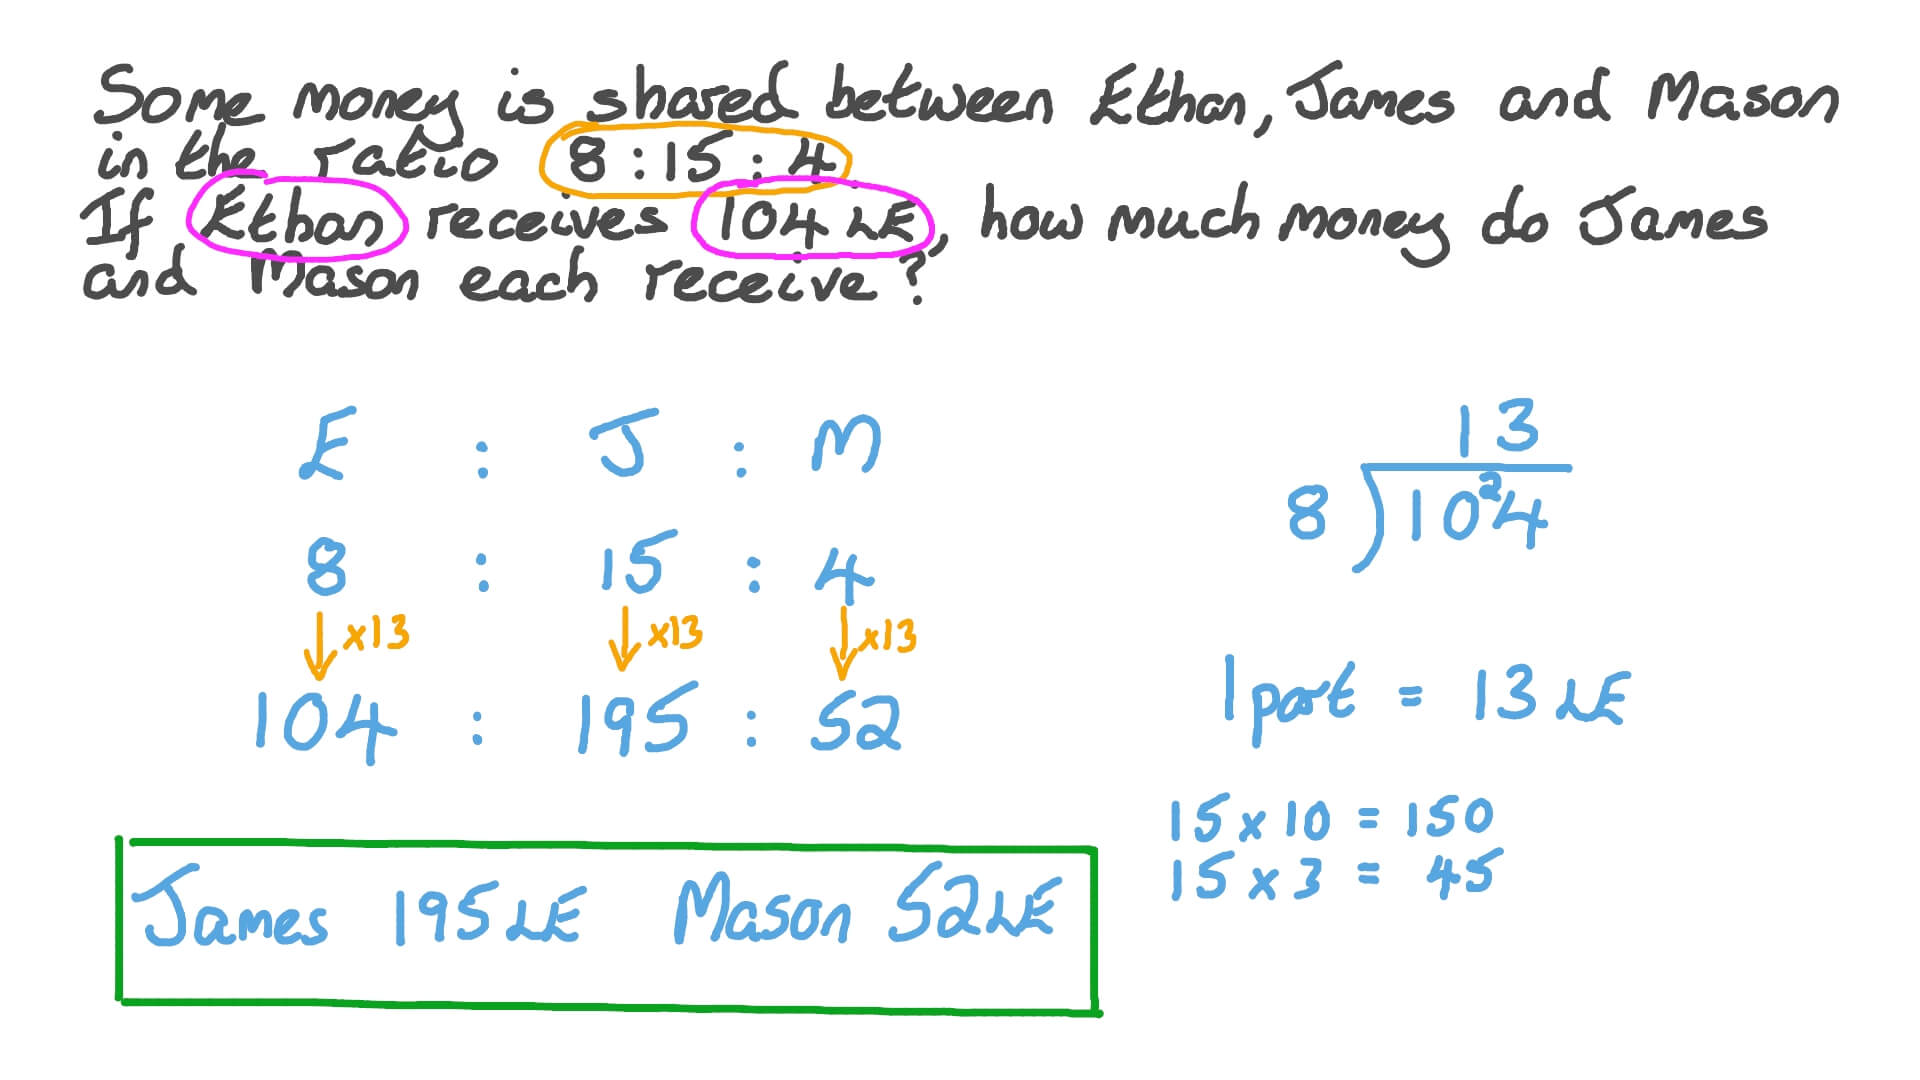 Some money is shared between Ethan, James and Mason
in the ratio 8 : 15 : 4.
If Ethan receives 104 LE, how much money do James
and Mason each receive?
E : J : M
8 : 15 : 4
×13 ×13 ×13
104 : 195 : 52
James 195 LE Mason 52 LE
13
8 10²4
1 part = 13 LE
15 × 10 = 150
15 × 3 = 45